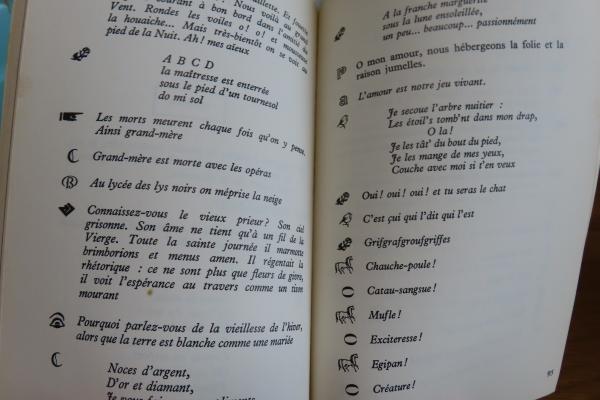 courant à bon bord dans l'amitié du
Vent. Rondes les voiles o! o! et moutonne
la houaiche... Mais très-bientôt on se voit au
pied de la Nuit. Ah! mes aïeux
A B C D
la maîtresse est enterrée
sous le pied d'un tournesol
do mi sol
Les morts meurent chaque fois qu'on y pense.
Ainsi grand-mère
Grand-mère est morte avec les opéras
Au lycée des lys noirs on méprise la neige
Connaissez-vous le vieux prieur? Son ciel
grisonne. Son âme ne tient qu'à un fil de la
Vierge. Toute la sainte journée il marmotte
brimborions et menus amen. Il régentait la
rhétorique : ce ne sont plus que fleurs de givre,
il voit l'espérance au travers comme un tison
mourant
Pourquoi parlez-vous de la vieillesse de l'hiver,
alors que la terre est blanche comme une mariée
Noces d'argent,
D'or et diamant,
A la franche marguerite
sous la lune ensoleillée,
un peu... beaucoup... passionnément
O mon amour, nous hébergeons la folie et la
raison jumelles.
L'amour est notre jeu vivant.
Je secoue l'arbre nuitier :
Les étoil's tomb'nt dans mon drap,
O la!
Je les tât' du bout du pied,
Je les mange de mes yeux,
Couche avec moi si t'en veux
Oui! oui! oui! et tu seras le chat
C'est çui qui l'dit qui l'est
Grifgrafgroufgriffes
Chauche-poule!
Catau-sangsue!
Mufle!
Exciteresse!
Egipan!
Créature!
95